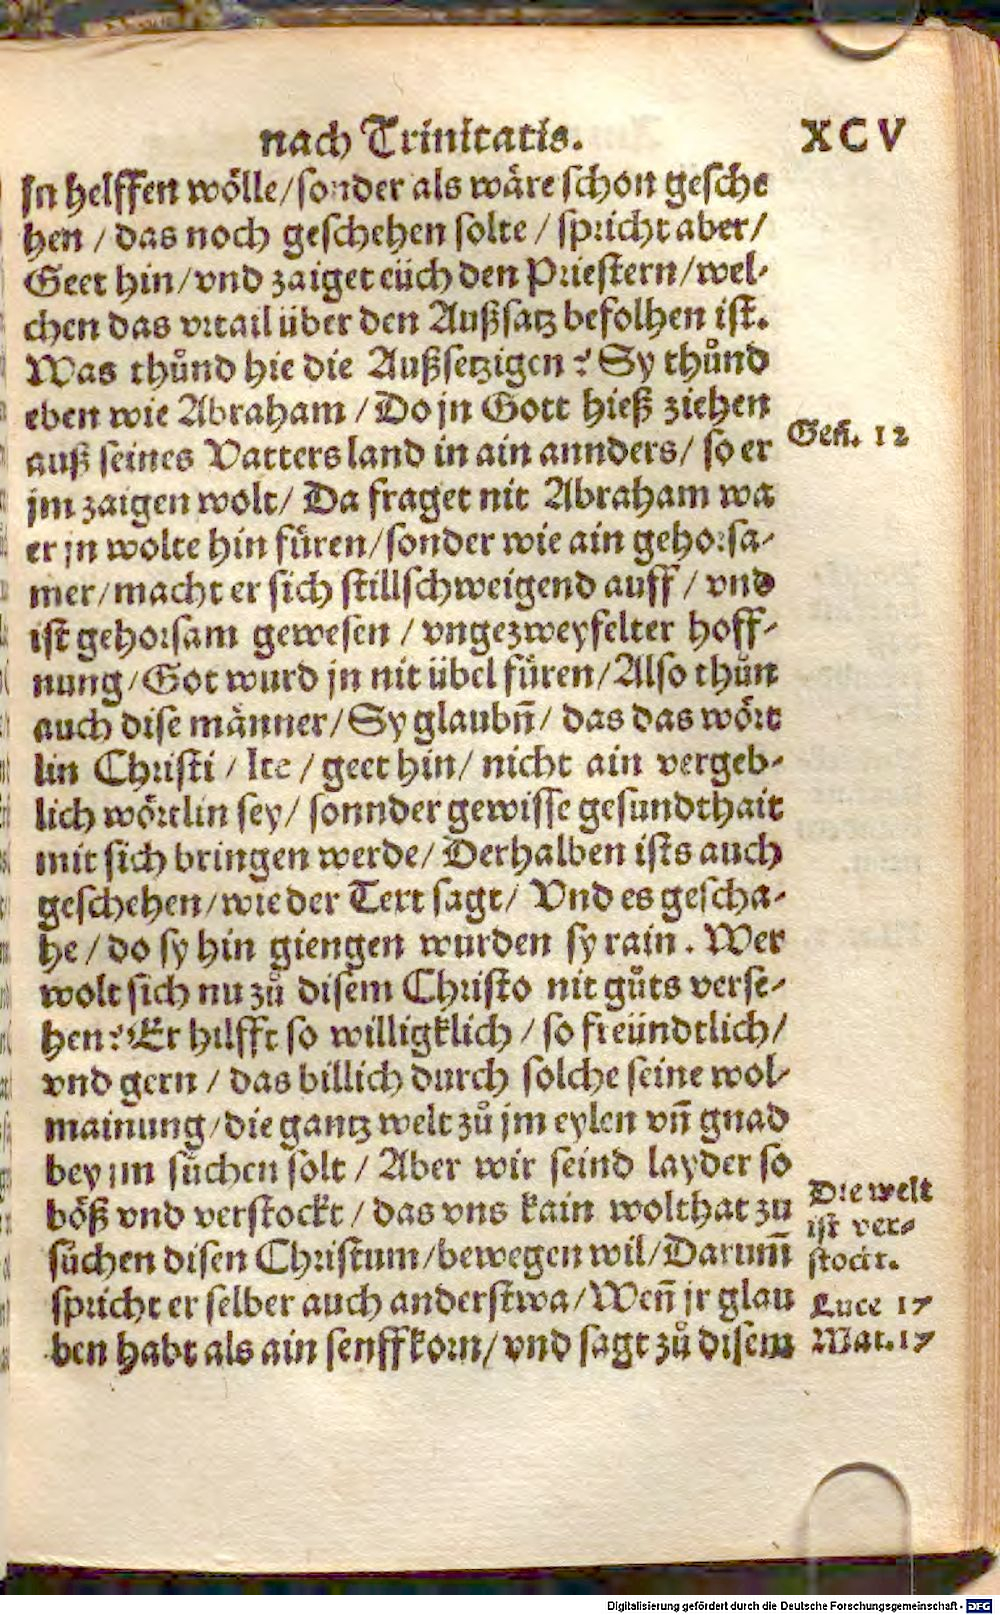 nach Trinitatis. XCV
jn helffen wölle/sonder als wäre schon gesche
hen / das noch geschehen solte / spricht aber/
Geet hin/vnd zaiget eüch den Priestern/wel-
chen das vrtail über den Außsatz befolhen ist.
Was thůnd hie die Außsetzigen? Sy thůnd
eben wie Abraham / Do jn Gott hieß ziehen
auß seines Vatters land in ain annders/ so er
Geñ. 12
jm zaigen wolt/ Da fraget nit Abraham wa
er jn wolte hin fůren/sonder wie ain gehorsa-
mer/macht er sich stillschweigend auff / vnd
ist gehorsam gewesen / vngezweyfelter hoff-
nung/Got wurd jn nit übel fůren/Also thůn
auch dise männer/Sy glaubñ/ das das wört
lin Christi / Ite / geet hin/ nicht ain vergeb-
lich wörtlin sey/ sonnder gewisse gesundthait
mit sich bringen werde/ Derhalben ists auch
geschehen/wie der Text sagt/ Vnd es gescha-
he / do sy hin giengen wurden sy rain. Wer
wolt sich nu zů disem Christo nit gůts verse-
hen? Er hilfft so willigklich / so freündtlich/
vnd gern / das billich durch solche seine wol-
mainung/die gantz welt zů jm eylen vñ gnad
bey jm sůchen solt / Aber wir seind layder so
böß vnd verstockt / das vns kain wolthat zu
sůchen disen Christum/bewegen wil/Darum̃
spricht er selber auch anderstwa/Weñ jr glau
ben habt als ain senffkorn/vnd sagt zů disem
Die welt
ist ver-
stockt.
Luce 17
Mat. 17
Digitalisierung gefördert durch die Deutsche Forschungsgemeinschaft - DFG